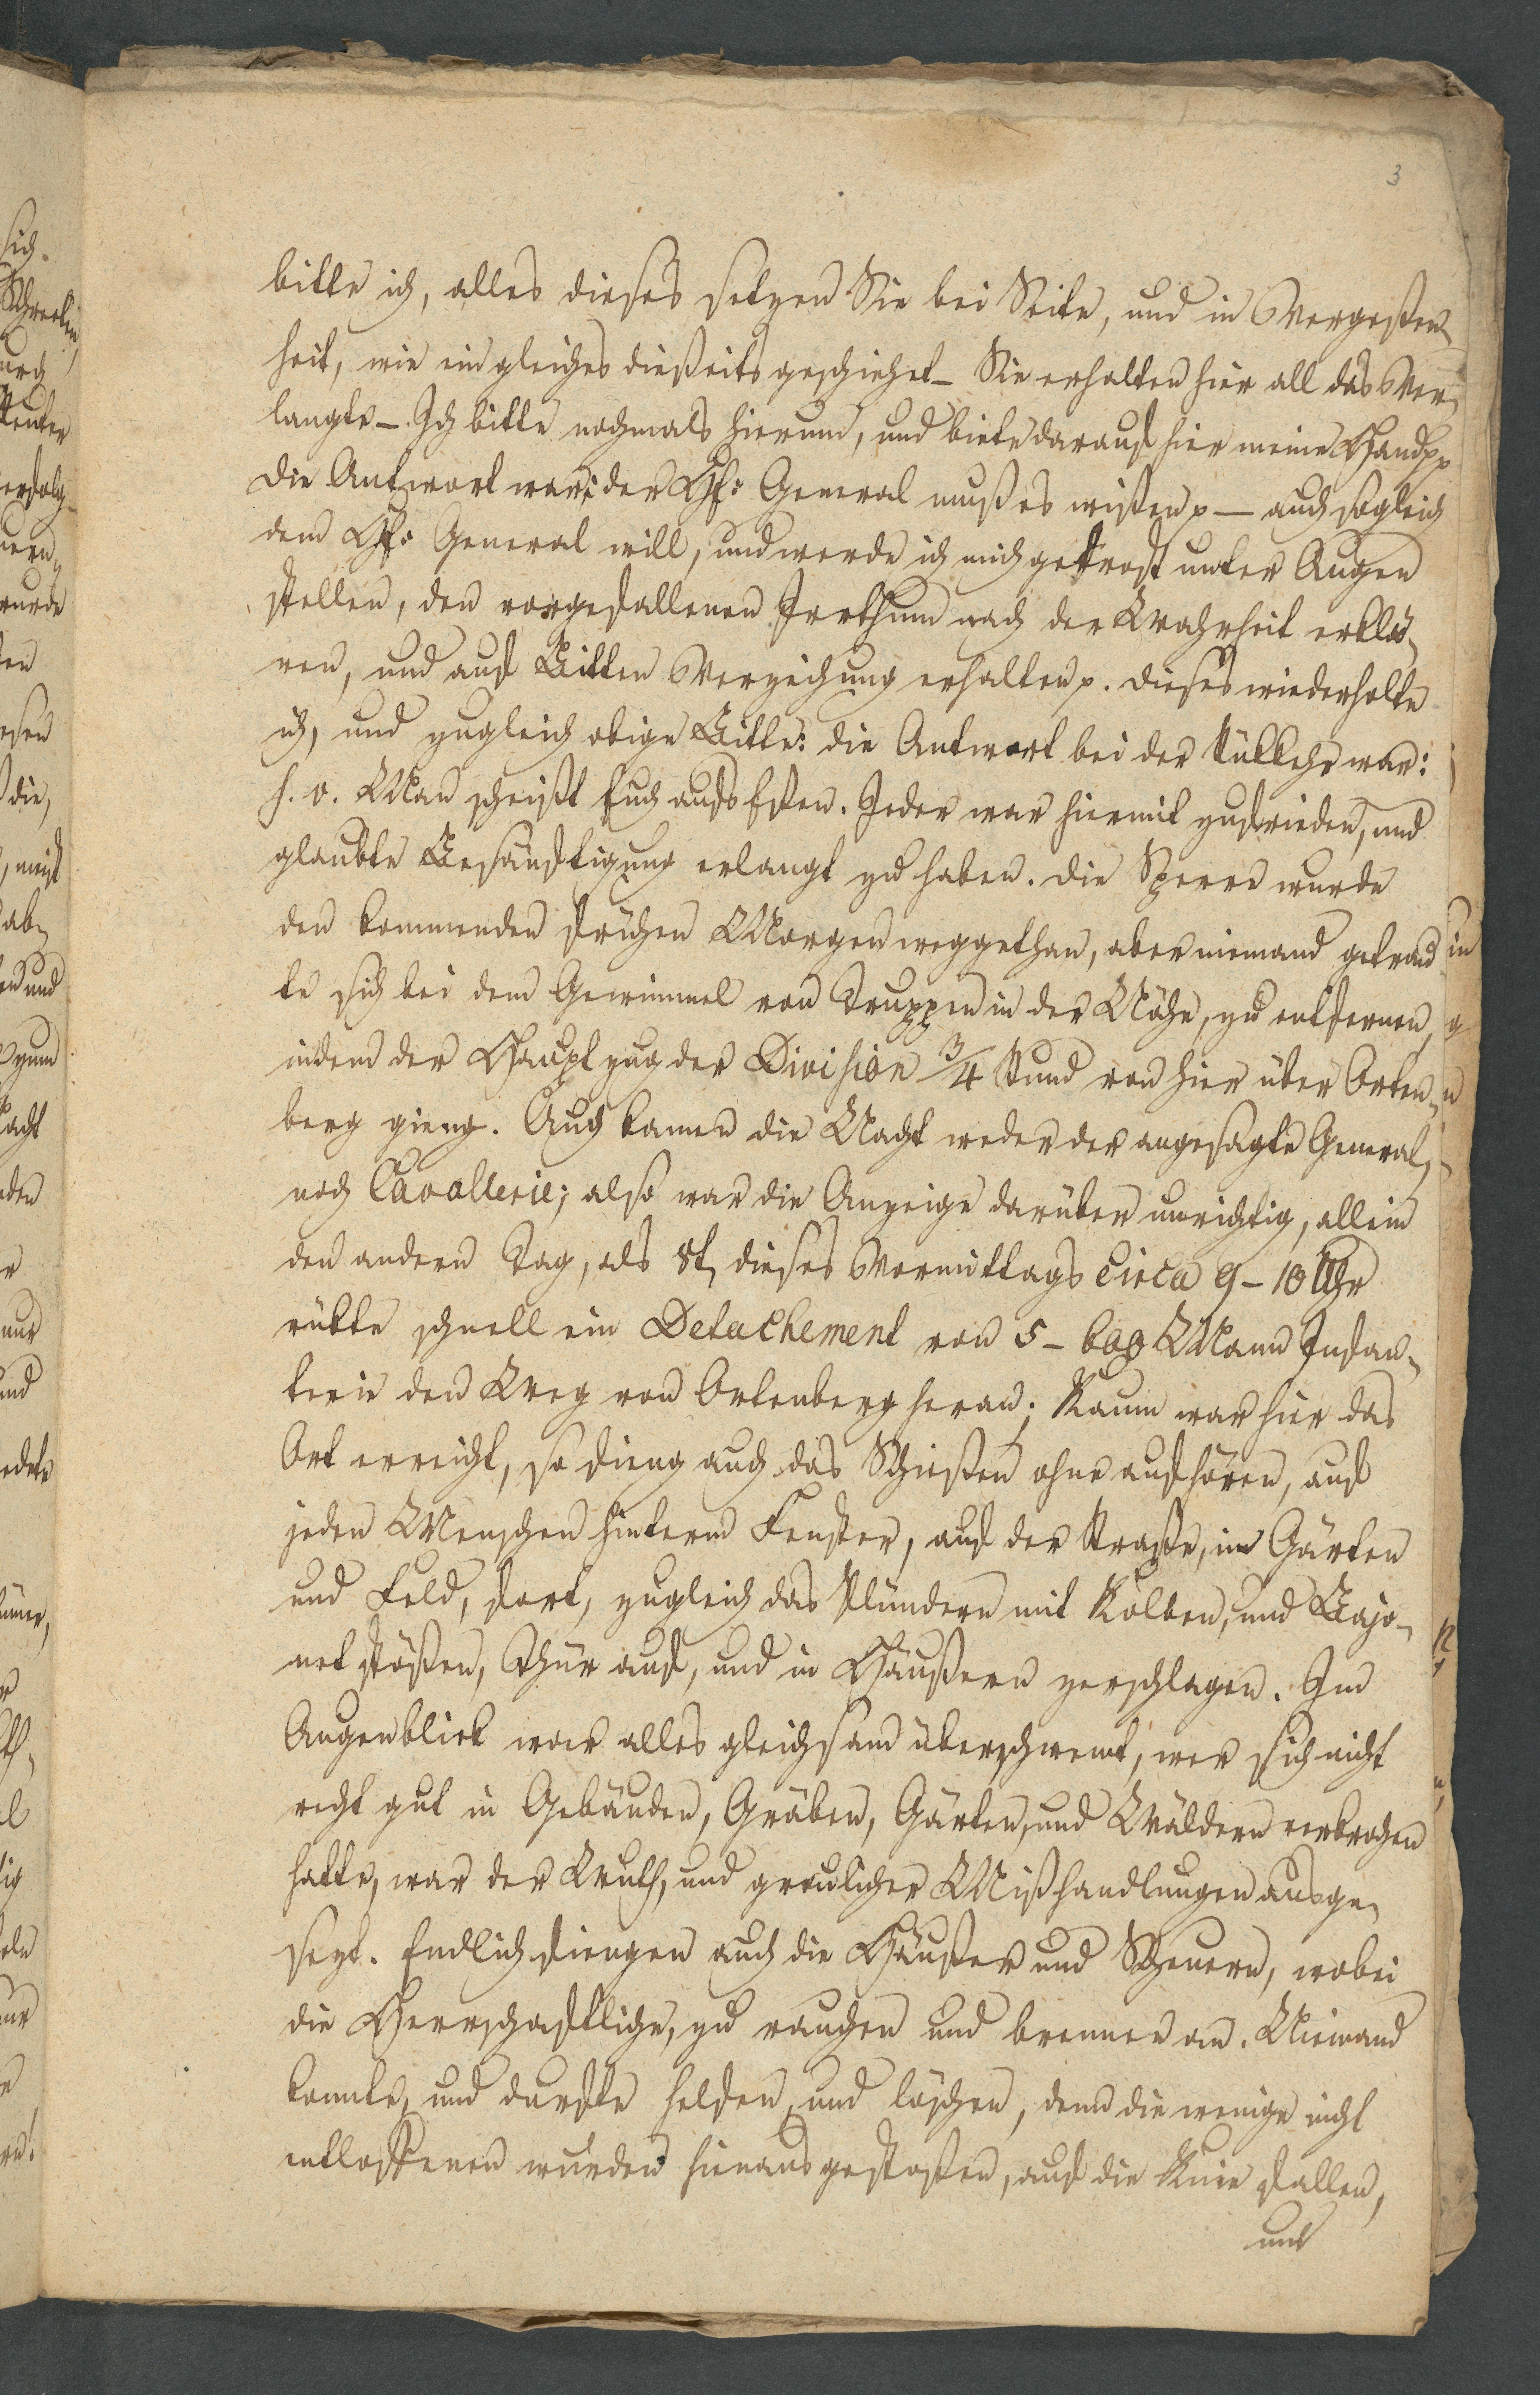 3
bitte ich, alles dieses setzen Sie bei Seite, und in Vergeßen„
heit, wie ein gleiches dießeits geschiehet_ Sie erhalten hier all das Ver„
langte_. Ich bitte nochmals hierum, und biete darauf hier meine Hand pp
die Antwort war: der H: General muß es wißen p — auch sogleich
dem H: General will, und werde ich mich getrost unter Augen
stellen, den vorgefallenen Irrthum nach der Wahrheit erklä„
ren, und auf Bitten Verzeihung erhalten p. dieses wiederholte
ich, und zugleich obige Bitte: die Antwort bei der Rükkehr war:
s. v. Man scheißt Euch aufs Eßen. Jeder war hiermit zufrieden, und
glaubte Besänftigung erlangt zu haben. die Sperre wurde
den kommenden frühen Morgen weggethan, aber niemand getrau
te sich bei dem Gewimmel von Truppen in der Nähe, zu entfernen,
indem der Hauptzug der Division 3/4 Stund von hier über Orten„
berg gieng. Auch kamen die Nacht weder der angesagte General,
noch Cavallerie; also war die Anzeige darüber unrichtig, allein
den andern Tag, als 8t, dieses Vormittags circa 9 – 10 Uhr
rükte schnell ein Detachement von 5 – 600 Mann Infan„
terie den Weg von Ortenberg heran; Kaum war hier das
Ort erreicht, so fieng auch das Schießen ohne aufhören, auf
jeden Menschen hinterm Fenster, auf der Straße, im Gärten
und Feld, fort, zugleich das Plündern mit Kolben, und Bajo„
net stößen, Thür auf, und in Häußern zerschlagen. Im
Augenblick war alles gleichsam überschwemt, wer sich nicht
recht gut in Gebäuden, Gräben, Gärten, und Wäldern verkrochen
hatte, war der Wuth, und greulicher Mißhandlungen ausge„
sezt. Endlich fiengen auch die Häußer und Scheuern, wobei
die Herrschaftliche, zu rauchen und brennen an. Niemand
konnte, und durfte helfen, und löschen, denn die wenige nicht
entloffenen wurden hinausgestoßen, auf die Knie fallen,
und